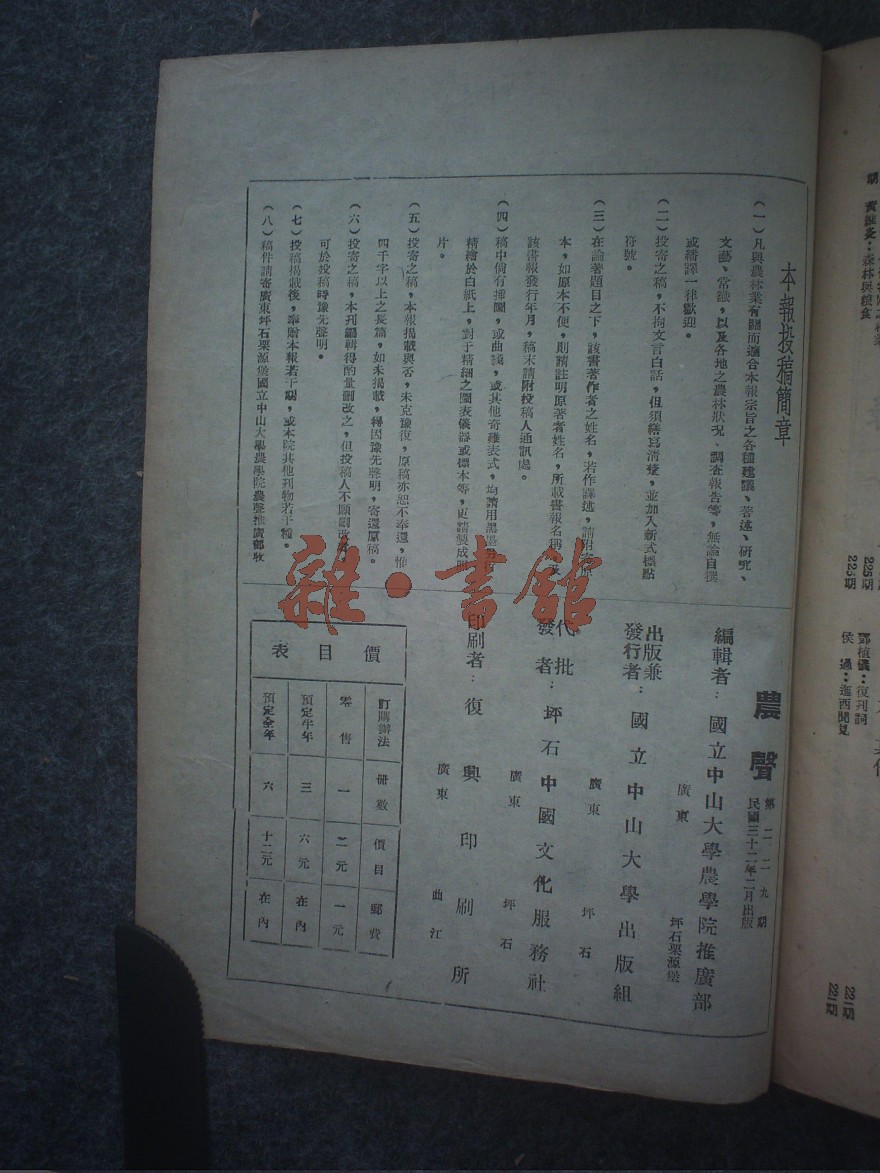 本報投稿簡章
(一)凡與農林業有關而適合本報宗旨之各種建議、著述、研究、
文藝、常識,以及各地之農林狀況、調查報告等,無論自撰
或繙譯一律歡迎。
(二)投寄之稿,不拘文言白話,但須繕寫清楚,並加入新式標點
符號。
(三)在論著題目之下,該書著作者之姓名,若作譯述,請附寄原
本,如原本不便,則請註明原著者姓名,所載書報名稱,及
該書報發行年月,稿末請附投稿人通訊處。
(四)稿中倘有揷圖,或曲綫,或其他奇離表式,均請用黑墨
精繪於白紙上,對于精細之圖表儀器或標本等,更請製成照
片。
(五)投寄之稿,本報揭載與否,未克豫復,原稿亦恕不奉還,惟
四千字以上之長篇,如未揭載,得因豫先聲明,寄還原稿。
(六)投寄之稿,本刊編輯得酌量刪改之,但投稿人不願刪改者,
可於投稿時豫先聲明。
(七)投稿揭載後,奉贈本報若干期,或本院其他刊物若干種。
(八)稿件請寄廣東坪石栗源堡國立中山大學農學院農聲推廣部收
農聲
第二二九期
民國三十二年二月出版
編輯者:國立中山大學農學院推廣部
廣東 坪石栗源堡
出版兼發行者:國立中山大學出版組
廣東 坪石
代批發者:坪石中國文化服務社
廣東 坪石
印刷者:復興印刷所
廣東 曲江
價目表
訂購辦法 冊數 價目 郵費
零售 一 二元 一元
預定半年 三 六元 在內
預定全年 六 十二元 在內
雜·書館
森林與糧食
225期
225期
鄧植儀:復刊詞
侯過:迤西聞見
221期
221期